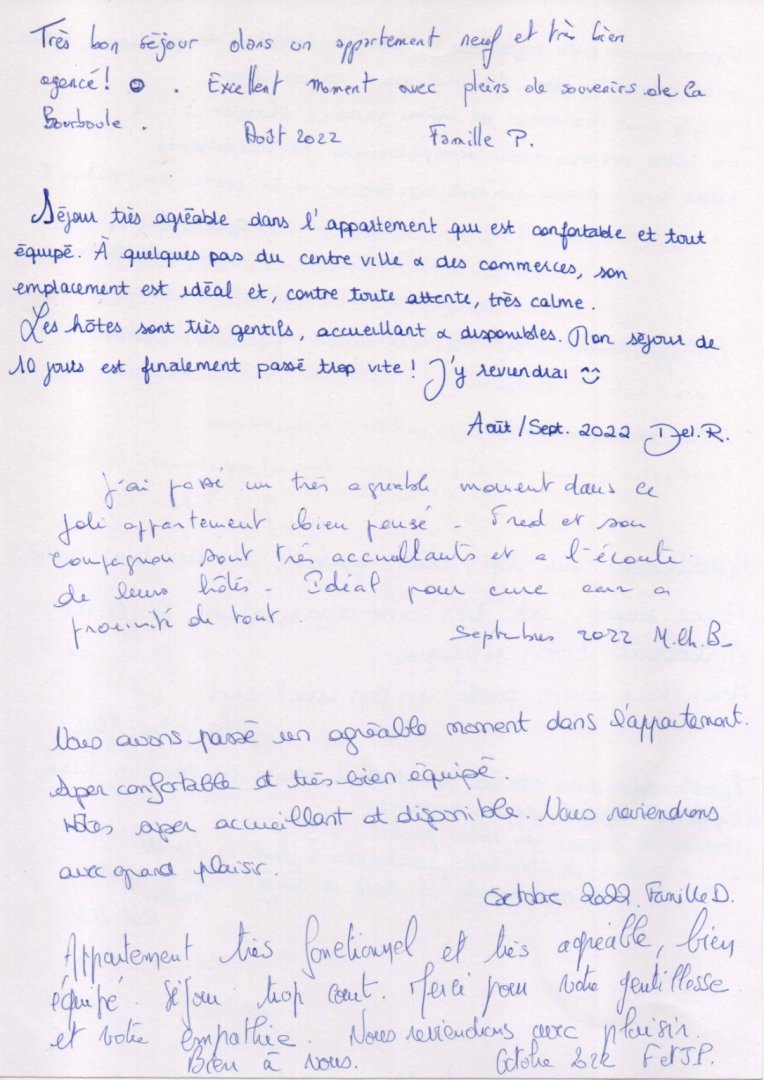 Très bon séjour dans un appartement neuf et très bien
agencé ! . Excellent moment avec pleins de souvenirs de la
Bourboule .
Août 2022 Famille P.
Séjour très agréable dans l'appartement qui est confortable et tout
équipé. À quelques pas du centre ville & des commerces, son
emplacement est idéal et, contre toute attente, très calme .
Les hôtes sont très gentils, accueillant & disponibles. Mon séjour de
10 jours est finalement passé trop vite ! J'y reviendrai
Août / Sept. 2022 Del. R.
J'ai passé un très agréable moment dans ce
joli appartement bien pensé - Fred et son
compagnon sont très accueillants et a l'écoute
de leurs hôtes - Idéal pour cure car a
proximité de tout
Septembre 2022 M.Ch.B_
Nous avons passé un agréable moment dans l'appartement.
Super confortable et très bien équipé.
Hôtes super accueillant et disponible. Nous reviendrons
avec grand plaisir.
Octobre 2022. Famille D.
Appartement très fonctionnel et très agréable, bien
équipé. Séjour trop court. Merci pour votre gentillesse
et votre empathie. Nous reviendrons avec plaisir.
Bien à vous. Octobre 2022 F et J.P.